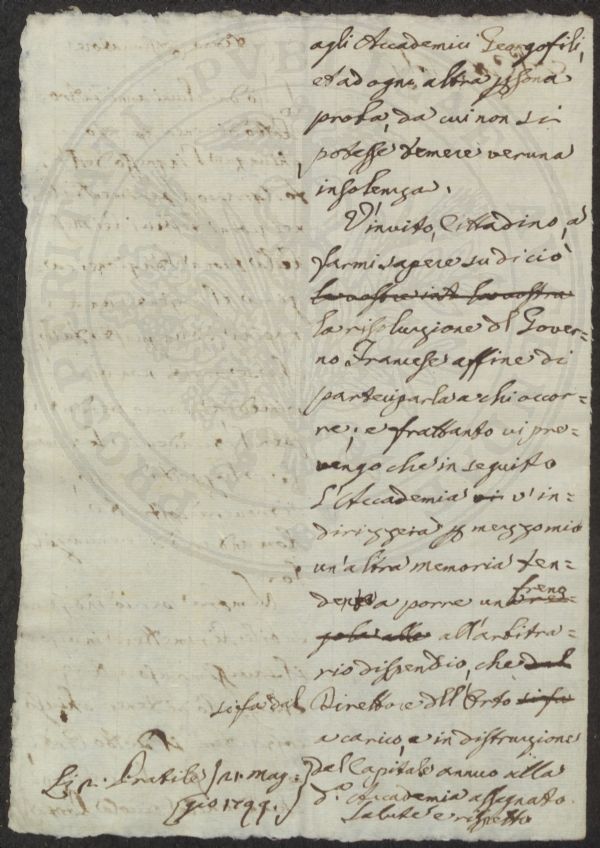 agli Accademici Georgofili,
et ad ogni altra pſona
proba, da cui non si
potesse temere veruna
insolenza.
V'invito, Cittadino, à
farmi sapere su di ciò
la vostra int la vostra
la risoluzione dl Gover=
no Francese affine di
parteciparla a chi occor=
re; e frattanto vi pre=
vengo che in seguito
l'Accademia vi v'in=
dirizzerà p mezzo mio
un'altra memoria ten=
dente a porre un freno
all'arbitra=
rio dispendio, che dal
si fa dal Direttore dll'Orto si fa
a carico, e in distruzione
dal Capitale annuo alla
d.a Accademia assegnato.
Salute e rispetto
Li 2. Pratile / 21. Mag=
gio 1799.